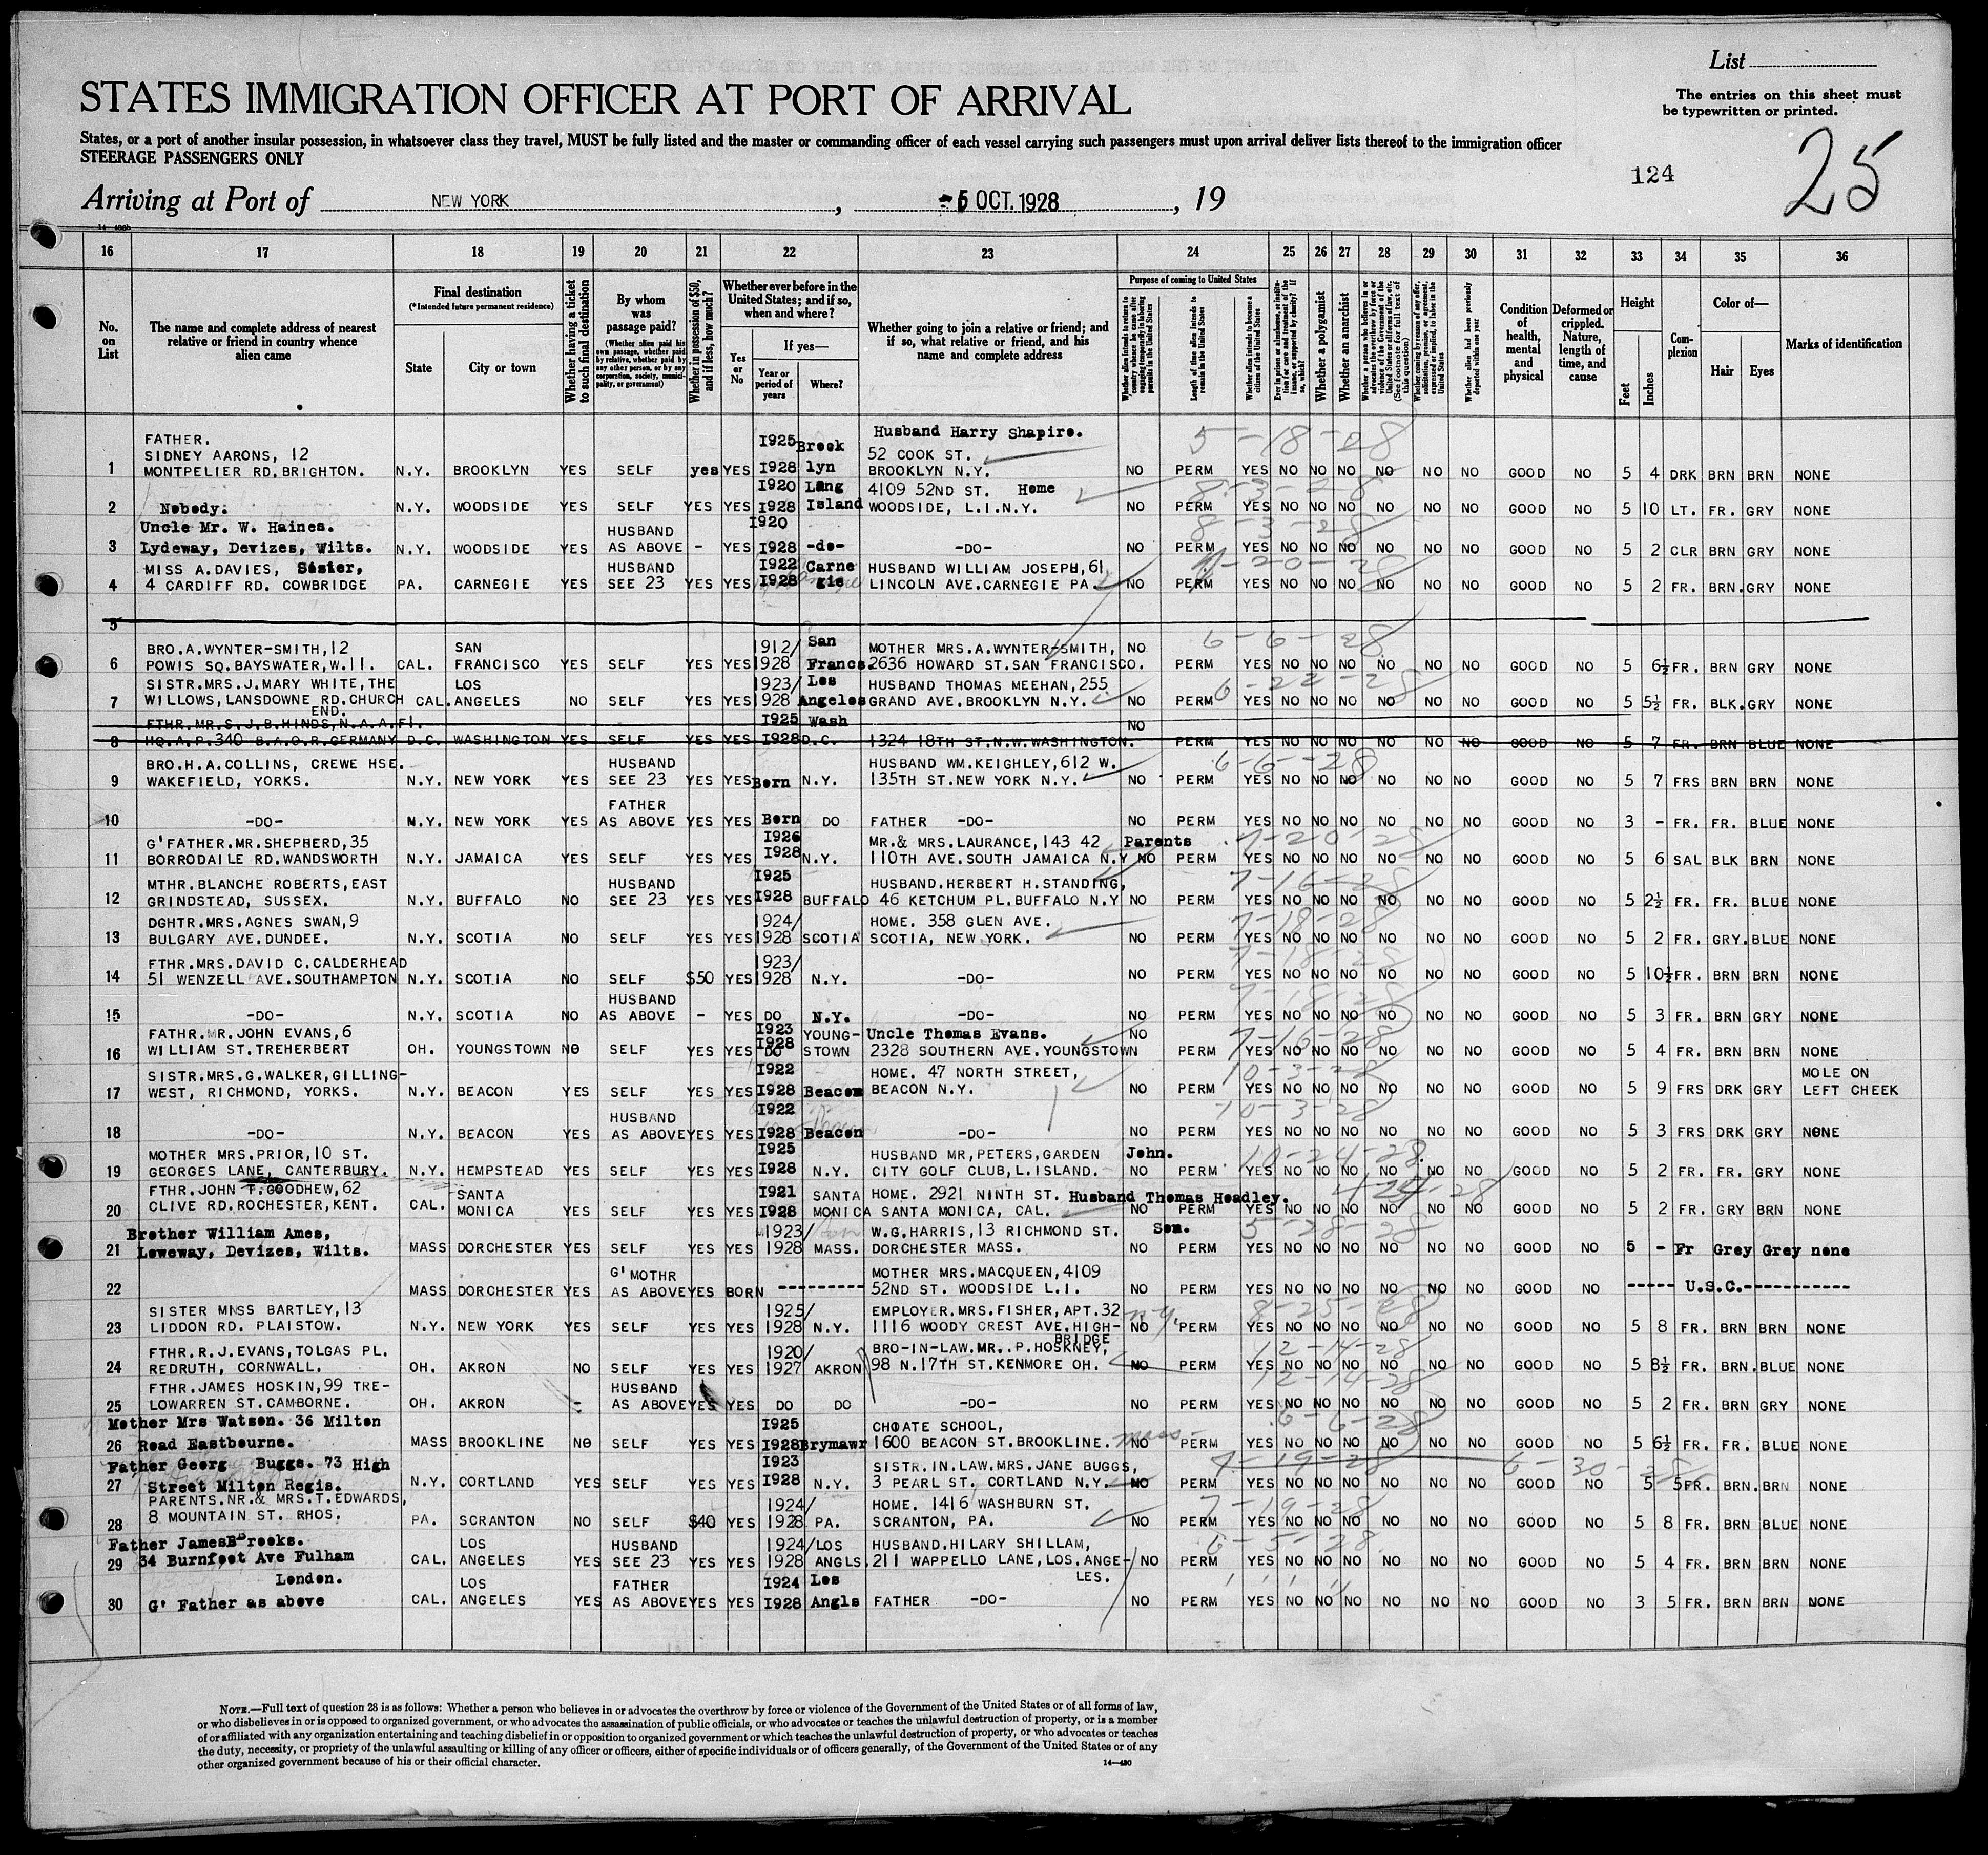 List
STATES IMMIGRATION OFFICER AT PORT OF ARRIVAL
The entries on this sheet must
be typewritten or printed.
States, or a port of another insular possession, in whatsoever class they travel, MUST be fully listed and the master or commanding officer of each vessel carrying such passengers must upon arrival deliver lists thereof to the immigration officer
STEERAGE PASSENGERS ONLY
124
25
Arriving at Port of NEW YORK, OCT. 1928, 19
16 17 18 19 20 21 22 23 24 25 26 27 28 29 30 31 32 33 34 35 36
No. on List
The name and complete address of nearest relative or friend in country whence alien came
Final destination
(*Intended future permanent residence)
State
City or town
Whether having a ticket to such final destination
By whom was passage paid?
(Whether alien paid his own passage, whether paid by relative, whether paid by any other person, or by any corporation, society, municipality, or government)
Whether in possession of $50, and if less, how much?
Whether ever before in the United States; and if so, when and where?
Yes or No
If yes—
Year or period of years
Where?
Whether going to join a relative or friend; and if so, what relative or friend, and his name and complete address
Purpose of coming to United States
Length of time alien intends to remain in the United States
Whether alien intends to become a citizen of the United States
Whether a polygamist
Whether an anarchist
Condition of health, mental and physical
Deformed or crippled. Nature, length of time, and cause
Height
Feet
Inches
Complexion
Color of—
Hair
Eyes
Marks of identification
FATHER. SIDNEY AARONS, 12
1 MONTPELIER RD.BRIGHTON. N.Y. BROOKLYN YES SELF yes YES 1925 1928 Brooklyn Husband Harry Shapiro. 52 COOK ST. BROOKLYN N.Y. 5-18-28 NO PERM YES NO NO NO NO NO NO GOOD NO 5 4 DRK BRN BRN NONE
2 Nobody. N.Y. WOODSIDE YES SELF YES YES 1920 1928 Long Island 4109 52ND ST. Home WOODSIDE, L.I.N.Y. 8-3-28 NO PERM YES NO NO NO NO NO NO GOOD NO 5 10 LT. FR. GRY NONE
Uncle Mr. W. Haines.
3 Lydeway, Devizes, Wilts. N.Y. WOODSIDE YES HUSBAND AS ABOVE - YES 1920 1928 -do- -DO- 8-3-28 NO PERM YES NO NO NO NO NO NO GOOD NO 5 2 CLR BRN GRY NONE
MISS A.DAVIES, Sister,
4 4 CARDIFF RD. COWBRIDGE PA. CARNEGIE YES HUSBAND SEE 23 YES YES 1922 1928 Carnegie HUSBAND WILLIAM JOSEPH,61 LINCOLN AVE.CARNEGIE PA NO PERM YES NO NO NO NO NO NO GOOD NO 5 2 FR. BRN. GRY NONE
5
BRO.A.WYNTER-SMITH,12
6 POWIS SQ.BAYSWATER,W.11. CAL. SAN FRANCISCO YES SELF YES YES 1912/1928 San Francs. MOTHER MRS.A.WYNTER-SMITH, 2636 HOWARD ST.SAN FRANCISCO. 6-6-28 NO PERM YES NO NO NO NO NO NO GOOD NO 5 6½ FR. BRN GRY NONE
SISTR.MRS.J.MARY WHITE,THE
7 WILLOWS,LANSDOWNE RD.CHURCH END. CAL. LOS ANGELES NO SELF YES YES 1923/1928 Los Angeles HUSBAND THOMAS MEEHAN,255 GRAND AVE.BROOKLYN N.Y. 6-22-28 NO PERM YES NO NO NO NO NO NO GOOD NO 5 5½ FR. BLK. GRY NONE
FTHR.MR.S.J.B.HINDS,N.A.A.FI.
8 HQ.A.P.340 B.A.O.R.GERMANY D.C. WASHINGTON YES SELF YES YES 1925 1928 Wash D.C. 1324 18TH ST.N.W.WASHINGTON. NO PERM YES NO NO NO NO NO NO GOOD NO 5 7 FR. BRN BLUE NONE
BRO.H.A.COLLINS, CREWE HSE.
9 WAKEFIELD, YORKS. N.Y. NEW YORK YES HUSBAND SEE 23 YES YES Born N.Y. HUSBAND WM.KEIGHLEY,612 W. 135TH ST.NEW YORK N.Y. 6-6-28 NO PERM YES NO NO NO NO NO NO GOOD NO 5 7 FRS BRN BRN NONE
10 -DO- N.Y. NEW YORK YES FATHER AS ABOVE YES YES Born DO FATHER -DO- NO PERM YES NO NO NO NO NO NO GOOD NO 3 - FR. FR. BLUE NONE
G'FATHER.MR.SHEPHERD,35
11 BORRODAILE RD.WANDSWORTH N.Y. JAMAICA YES SELF YES YES 1926 1928 N.Y. MR.& MRS.LAURANCE,143 42 Parents 110TH AVE.SOUTH JAMAICA N.Y 7-20-28 NO PERM YES NO NO NO NO NO NO GOOD NO 5 6 SAL BLK BRN NONE
MTHR.BLANCHE ROBERTS,EAST
12 GRINDSTEAD, SUSSEX. N.Y. BUFFALO NO HUSBAND SEE 23 YES YES 1925 1928 BUFFALO HUSBAND.HERBERT H.STANDING, 46 KETCHUM PL.BUFFALO N.Y 7-16-28 NO PERM YES NO NO NO NO NO NO GOOD NO 5 2½ FR. FR. BLUE NONE
DGHTR.MRS.AGNES SWAN,9
13 BULGARY AVE.DUNDEE. N.Y. SCOTIA NO SELF YES YES 1924/1928 SCOTIA HOME. 358 GLEN AVE. SCOTIA, NEW YORK. 7-18-28 NO PERM YES NO NO NO NO NO NO GOOD NO 5 2 FR. GRY. BLUE NONE
FTHR.MRS.DAVID C.CALDERHEAD
14 51 WENZELL AVE.SOUTHAMPTON N.Y. SCOTIA NO SELF $50 YES 1923/1928 N.Y. -DO- 7-18-28 NO PERM YES NO NO NO NO NO NO GOOD NO 5 10½ FR. BRN BRN NONE
15 -DO- N.Y. SCOTIA NO HUSBAND AS ABOVE - YES DO N.Y. -DO- 7-18-28 NO PERM YES NO NO NO NO NO NO GOOD NO 5 3 FR. BRN GRY NONE
FATHR.MR.JOHN EVANS,6
16 WILLIAM ST.TREHERBERT OH. YOUNGSTOWN NO SELF YES YES 1923 1928 DO YOUNG-STOWN Uncle Thomas Evans. 2328 SOUTHERN AVE.YOUNGSTOWN 7-16-28 NO PERM YES NO NO NO NO NO NO GOOD NO 5 4 FR. BRN BRN NONE
SISTR.MRS.G.WALKER,GILLING-
17 WEST, RICHMOND, YORKS. N.Y. BEACON YES SELF YES YES 1922 1928 Beacon HOME. 47 NORTH STREET, BEACON N.Y. 10-3-28 NO PERM YES NO NO NO NO NO NO GOOD NO 5 9 FRS DRK GRY MOLE ON LEFT CHEEK
18 -DO- N.Y. BEACON YES HUSBAND AS ABOVE YES YES 1922 1928 Beacon -DO- 10-3-28 NO PERM YES NO NO NO NO NO NO GOOD NO 5 3 FRS DRK GRY NONE
MOTHER MRS.PRIOR,10 ST.
19 GEORGES LANE, CANTERBURY. N.Y. HEMPSTEAD YES SELF YES YES 1925 1928 N.Y. HUSBAND MR,PETERS,GARDEN John. CITY GOLF CLUB,L.ISLAND. 10-24-28 NO PERM YES NO NO NO NO NO NO GOOD NO 5 2 FR. FR. GRY NONE
FTHR.JOHN T.GOODHEW,62
20 CLIVE RD.ROCHESTER,KENT. CAL. SANTA MONICA YES SELF YES YES 1921 1928 SANTA MONICA HOME. 2921 NINTH ST. Husband Thomas Headley. SANTA MONICA, CAL. NO PERM YES NO NO NO NO NO NO GOOD NO 5 2 FR. GRY BRN NONE
Brother William Ames,
21 Loweway, Devizes, Wilts. MASS DORCHESTER YES SELF YES YES 1923/1928 MASS. W.G.HARRIS,13 RICHMOND ST. Son. DORCHESTER MASS. 5-28-28 NO PERM YES NO NO NO NO NO NO GOOD NO 5 - Fr Grey Grey none
22 MASS DORCHESTER YES G'MOTHR AS ABOVE YES BORN ---------- MOTHER MRS.MACQUEEN,4109 52ND ST. WOODSIDE L.I. NO PERM YES NO NO NO NO NO NO GOOD NO ----- U.S.C.-----------
SISTER MISS BARTLEY,13
23 LIDDON RD. PLAISTOW. N.Y. NEW YORK YES SELF YES YES 1925/1928 N.Y. EMPLOYER.MRS.FISHER,APT.32 1116 WOODY CREST AVE.HIGH-BRIDGE n.y. 8-25-28 NO PERM YES NO NO NO NO NO NO GOOD NO 5 8 FR. BRN BRN NONE
FTHR.R.J.EVANS,TOLGAS PL.
24 REDRUTH, CORNWALL. OH. AKRON NO SELF YES YES 1920/1927 AKRON BRO-IN-LAW.MR..P.HOSKNEY, 98 N.17TH ST.KENMORE OH. 12-14-28 NO PERM YES NO NO NO NO NO NO GOOD NO 5 8½ FR. BRN. BLUE NONE
FTHR.JAMES HOSKIN,99 TRE-
25 LOWARREN ST.CAMBORNE. OH. AKRON - HUSBAND AS ABOVE YES YES DO DO -DO- 12-14-28 NO PERM YES NO NO NO NO NO NO GOOD NO 5 2 FR. BRN GRY NONE
Mother Mrs Watson. 36 Milton
26 Road Eastbourne. MASS BROOKLINE NO SELF YES YES 1925 1928 Brymawr CHOATE SCHOOL, 1600 BEACON ST.BROOKLINE. mass- 6-6-28 NO PERM YES NO NO NO NO NO NO GOOD NO 5 6½ FR. FR. BLUE NONE
Father Georg Buggs. 73 High
27 Street Milton Regis. N.Y. CORTLAND YES SELF YES YES 1923 1928 N.Y. SISTR.IN.LAW.MRS.JANE BUGGS, 3 PEARL ST. CORTLAND N.Y. 7-19-28 NO PERM YES NO NO NO NO NO NO GOOD NO 5 5 FR. BRN. BRN NONE
PARENTS.NR.& MRS.T.EDWARDS,
28 8 MOUNTAIN ST. RHOS. PA. SCRANTON NO SELF $40 YES 1924/1928 PA. HOME. 1416 WASHBURN ST. SCRANTON, PA. 7-19-28 NO PERM YES NO NO NO NO NO NO GOOD NO 5 8 FR. BRN BLUE NONE
Father James Brooks.
29 34 Burnfoot Ave Fulham London. CAL. LOS ANGELES YES HUSBAND SEE 23 YES YES 1924/1928 LOS ANGLS. HUSBAND.HILARY SHILLAM, 211 WAPPELLO LANE,LOS.ANGE-LES. 6-5-28 NO PERM YES NO NO NO NO NO NO GOOD NO 5 4 FR. BRN BRN NONE
30 G' Father as above CAL. LOS ANGELES YES FATHER AS ABOVE YES YES 1924 1928 Los Angls FATHER -DO- NO PERM YES NO NO NO NO NO NO GOOD NO 3 5 FR. BRN BRN NONE
NOTE.—Full text of question 28 is as follows: Whether a person who believes in or advocates the overthrow by force or violence of the Government of the United States or of all forms of law,
or who disbelieves in or is opposed to organized government, or who advocates the assassination of public officials, or who advocates or teaches the unlawful destruction of property, or is a member
of or affiliated with any organization entertaining and teaching disbelief in or opposition to organized government or which teaches the unlawful destruction of property, or who advocates or teaches
the duty, necessity, or propriety of the unlawful assaulting or killing of any officer or officers, either of specific individuals or of officers generally, of the Government of the United States or of any
other organized government because of his or their official character.
14—430